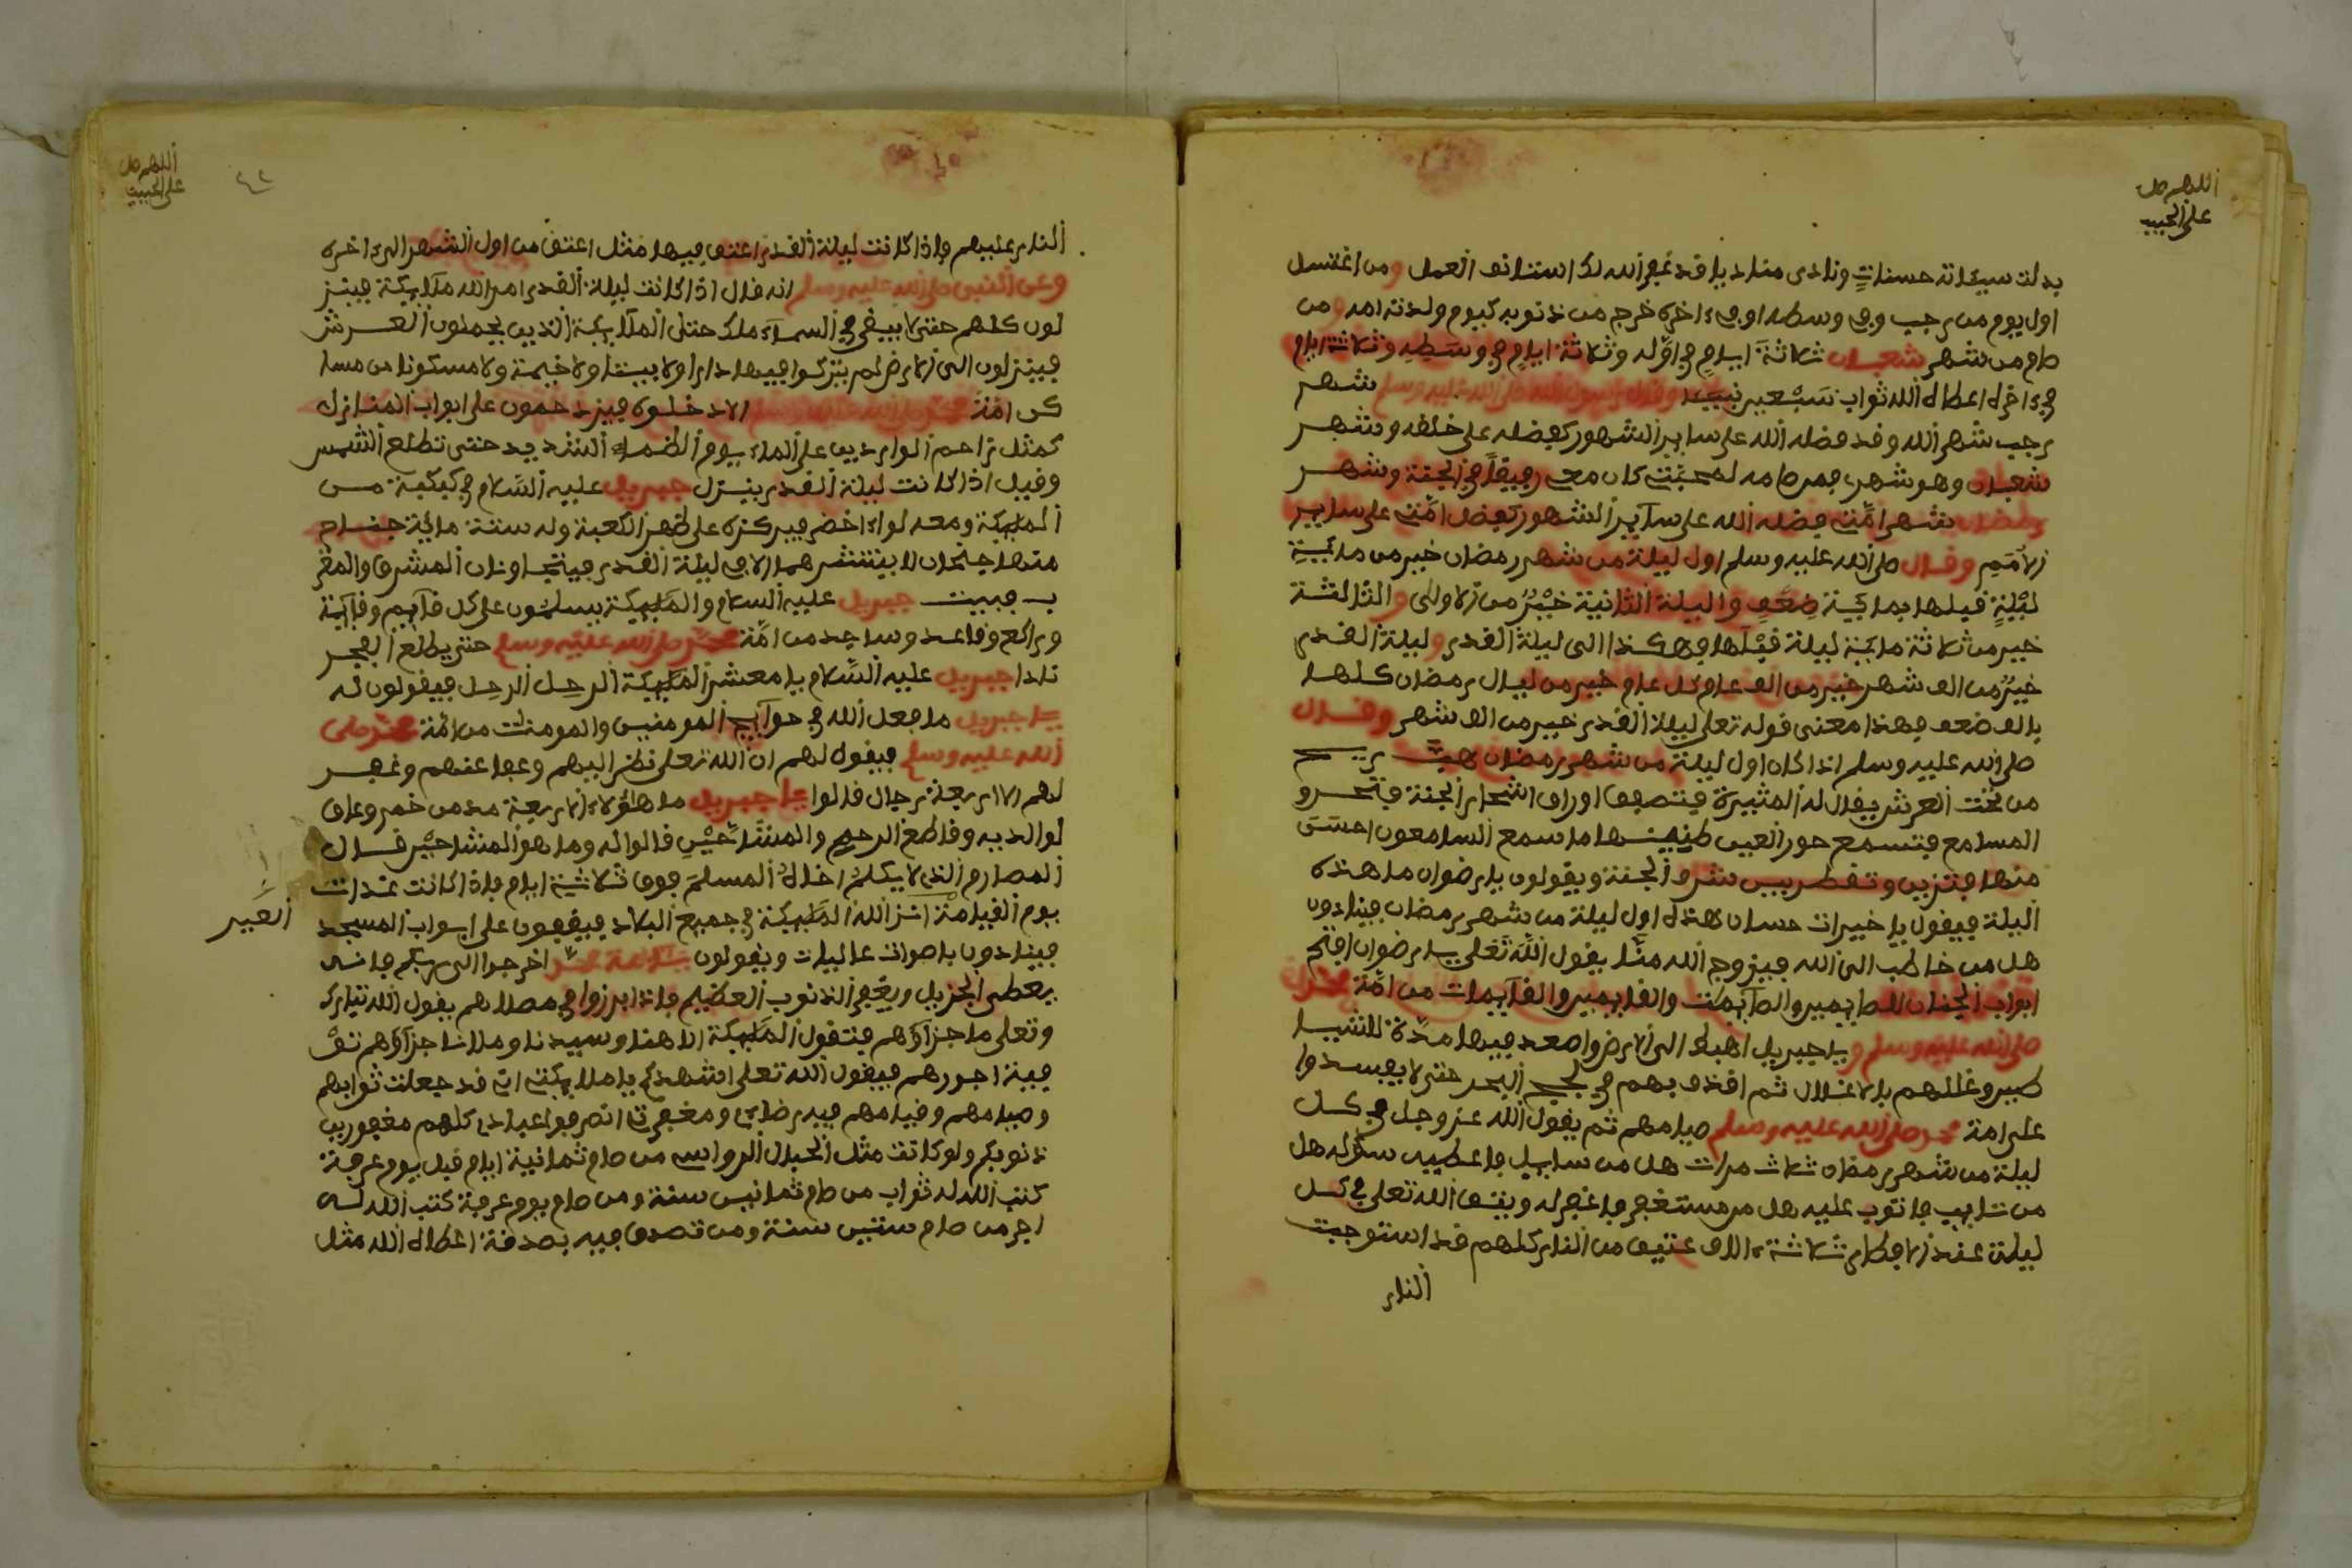 اللهم صل
على الحبيب
بدلت سيئاته حسنات ونادى مناد يا قد غفر الله لك استانف العمل ومن اغتسل
اول يوم من رجب وفي وسطه او في ءاخره خرج من ذنوبه كيوم ولدته امه ومن
صام من شهر شعبان ثلاثة ايام في اوله وثلاثة ايام في وسطه وثلاثة ايام
في ءاخره اعطاه الله ثواب سبعين نبيا وقال رسول الله صلى الله عليه وسلم شهر
رجب شهر الله وقد فضله الله على ساير الشهور كفضله على خلقه وشهر
شعبان وهو شهري فمن صامه لمحبتي كان معي رفيقا في الجنة وشهر
رمضان شهر امتي فضله الله على ساير الشهور كفضل امتي على ساير
الامم وقال صلى الله عليه وسلم اول ليلة من شهر رمضان خير من مائة
ليلة قبلها بمائة ضعف واليلة الثانية خير من الاولى والثالثة
خير من ثلاثة مائة ليلة قبلها هكذا الى ليلة القدر وليلة القدر
خير من الف شهر خير من الف عام كل عام خير من ليال رمضان كلها
بالف ضعف فهذا معنى قوله تعلى ليلة القدر خير من الف شهر وقال
صلى الله عليه وسلم اذا كان اول ليلة من شهر رمضان هبت ريح
من تحت العرش يقال له المثيرة فتصفق اوراق اشجار الجنة
المسامع فتسمع حور العين طنينها ما سمع السامعون احسن
منها فتزين وتفطر بين شرف الجنة ويقولون يا رضوان ما هذه
اليلة فيقول يا خيرات حسان هذه اول ليلة من شهر رمضان فينادون
هل من خاطب الى الله فيزوج الله منا يقول الله تعلى يا رضوان افتح
ابواب الجنان للصايمين والصايمات والقايمين والقايمات من امة محمد
صلى الله عليه وسلم ويا جبريل اهبط الى الارض واصعد فيها مدة للشيا
طين وغللهم بالاغلال ثم اقذف بهم في لجج البحر حتى لا يفسدوا
على امة محمد صلى الله عليه وسلم صيامهم ثم يقول الله عز وجل في كل
ليلة من شهر رمضان ثلاث مرات هل من سايل فاعطيه سؤله هل
من تايب فاتوب عليه هل من مستغفر فاغفر له ويعتق الله تعلى في كل
ليلة عند الافطار ثلاثة ءالاف عتيق من النار كلهم قد استوجبت
النار
اللهم صل
على الحبيب
٤٢
النار عليهم فاذا كانت ليلة القدر اعتق فيها مثل اعتق من اول الشهر الى ءاخره
وعن النبي صلى الله عليه وسلم انه قال اذا كانت ليلة القدر امر الله ملايكة فينز
لون كلهم حتى لا يبقى في السماء ملك حتى الملايكة الذين يحملون العرش
فينزلون الى الارض لم يتركوا فيها دارا ولا بيتا ولا خيمة ولا مسكونا من مسا
كن امة محمد صلى الله عليه وسلم الا دخلوه فيزدحمون على ابواب المنازل
كمثل تزاحم الواردين على الماء يوم الظماء الشديد حتى تطلع الشمس
وقيل اذا كانت ليلة القدر ينزل جبريل عليه السلام في كبكبة من
الملايكة ومعه لواء اخضر فيركزه على ظهر الكعبة وله ستة مائة جناح
منها جناحان لا ينتشرهما الا في ليلة القدر فيتجاوزان المشرق والمغر
ب فيبيت جبريل عليه السلام والملايكة يسلمون على كل قايم وقاية
وراكع وقاعد وساجد من امة محمد صلى الله عليه وسلم حتى يطلع الفجر
نادا جبريل عليه السلام يا معشر الملايكة الرحل الرحل فيقولون له
يا جبريل ما فعل الله في حوايج المومنين والمومنت من امة محمد صلى
الله عليه وسلم فيقول لهم ان الله تعلى نظر اليهم وعفا عنهم وغفر
لهم الا اربعة رجال قالوا يا جبريل ما هؤلاء الاربعة مدمن خمر وعاق
لوالديه وقاطع الرحم والمشاحين قالوا له وما هو المشاحين قال
المصارم الذي لا يكلم اخاه المسلم فوق ثلاثة ايام فاذا كانت غدات
يوم القيامة انزل الله الملايكة في جميع البلاد فيقفون على ابواب المسجد
العيد
فينادون باصوات عاليات ويقولون يا امة محمد اخرجوا الى ربكم فانه
يعطى الجزيل ويغفر الذنوب العظيم فاذا برزوا في مصلاهم يقول الله تبارك
وتعلى ما جزآؤهم فتقول الملايكة الاهنا وسيدنا ومولانا جزآؤهم توْ
فية اجورهم فيقول الله تعلى اشهدكم يا ملايكتي اني قد جعلت ثوابهم
وصيامهم وقيامهم فيه رضائ ومغفرتي انصرفوا عبادي كلهم مغفورين
ذنوبكم ولو كانت مثل الجبال الرواسي من صام ثمانية ايام قبل يوم عرفة
كتب الله له ثواب من صام ثمانين سنة ومن صام يوم عرفة كتب الله له
اجر من صام ستين سنة ومن تصدق فيه بصدقة اعطاه الله مثل